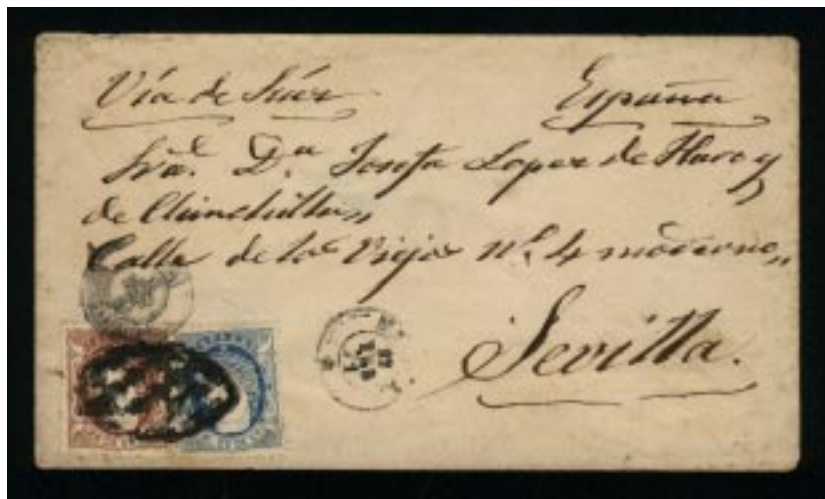 Vía de Súez España
Sra. D.ª Josefa Lopez de Haro y
de Chinchilla,,
Calle de la Vieja nº. 4 moderno,,
Sevilla.